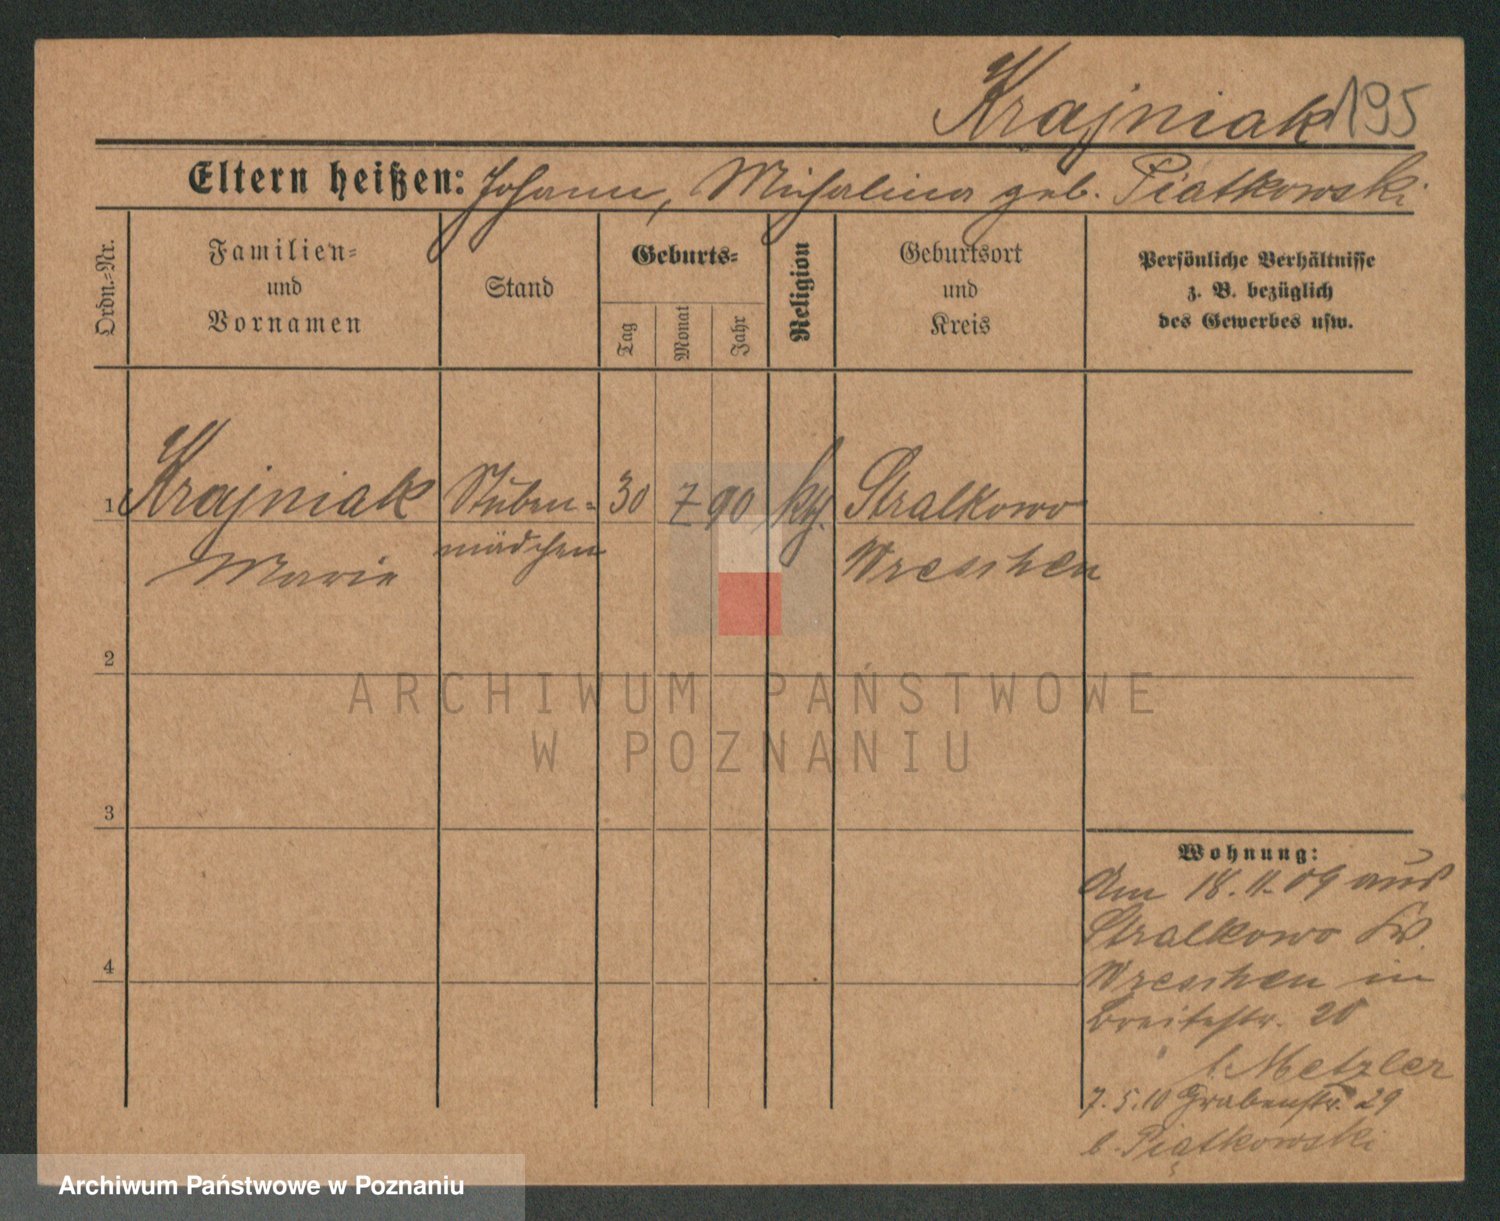 Krajniak 195
Eltern heißen: Johann, Michalina geb. Piatkowski
Ordn.-Nr.
Familien-
und
Vornamen
Stand
Geburts-
Tag
Monat
Jahr
Religion
Geburtsort
und
Kreis
Persönliche Verhältnisse
z. B. bezüglich
des Gewerbes usw.
1 Krajniak Stuben- 30 7 90 Stralkowo
Marie mädchen Wreschen
2
3
4
ARCHIWUM PAŃSTWOWE
W POZNANIU
Wohnung:
Am 18.11.09 aus
Stralkowo Kr.
Wreschen in
Breitestr. 20
b. Metzler
7.5.10 Grabenstr. 29
b. Piątkowski
Archiwum Państwowe w Poznaniu